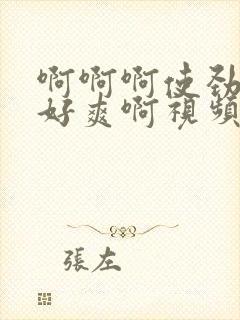 啊啊啊使劲
好爽啊視頻
張左